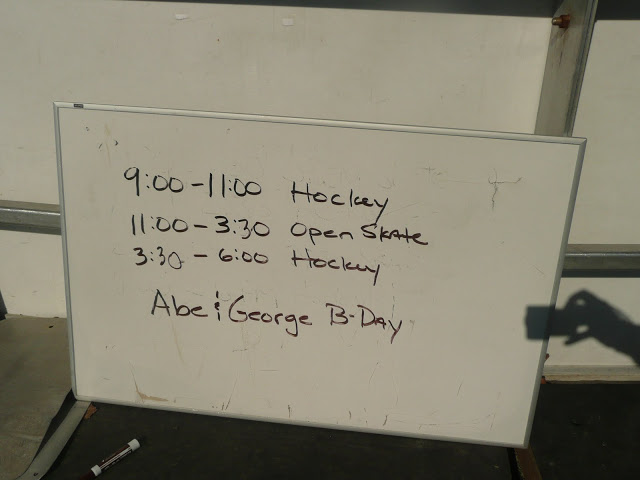 9:00-11:00 Hockey
11:00-3:30 Open Skate
3:30-6:00 Hockey
Abe & George B-Day